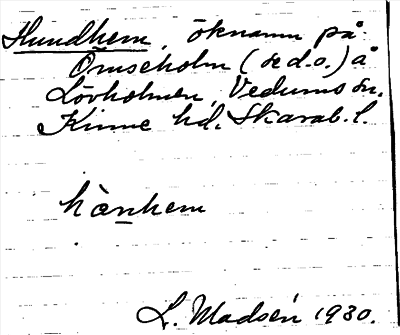 Hundhem, öknamn på
Ömseholm (se d.o.) å
Lövholmen, Vedums sn.
Kinne hd. Skarab. l.
hàn̲hem
L. Madsén 1930.